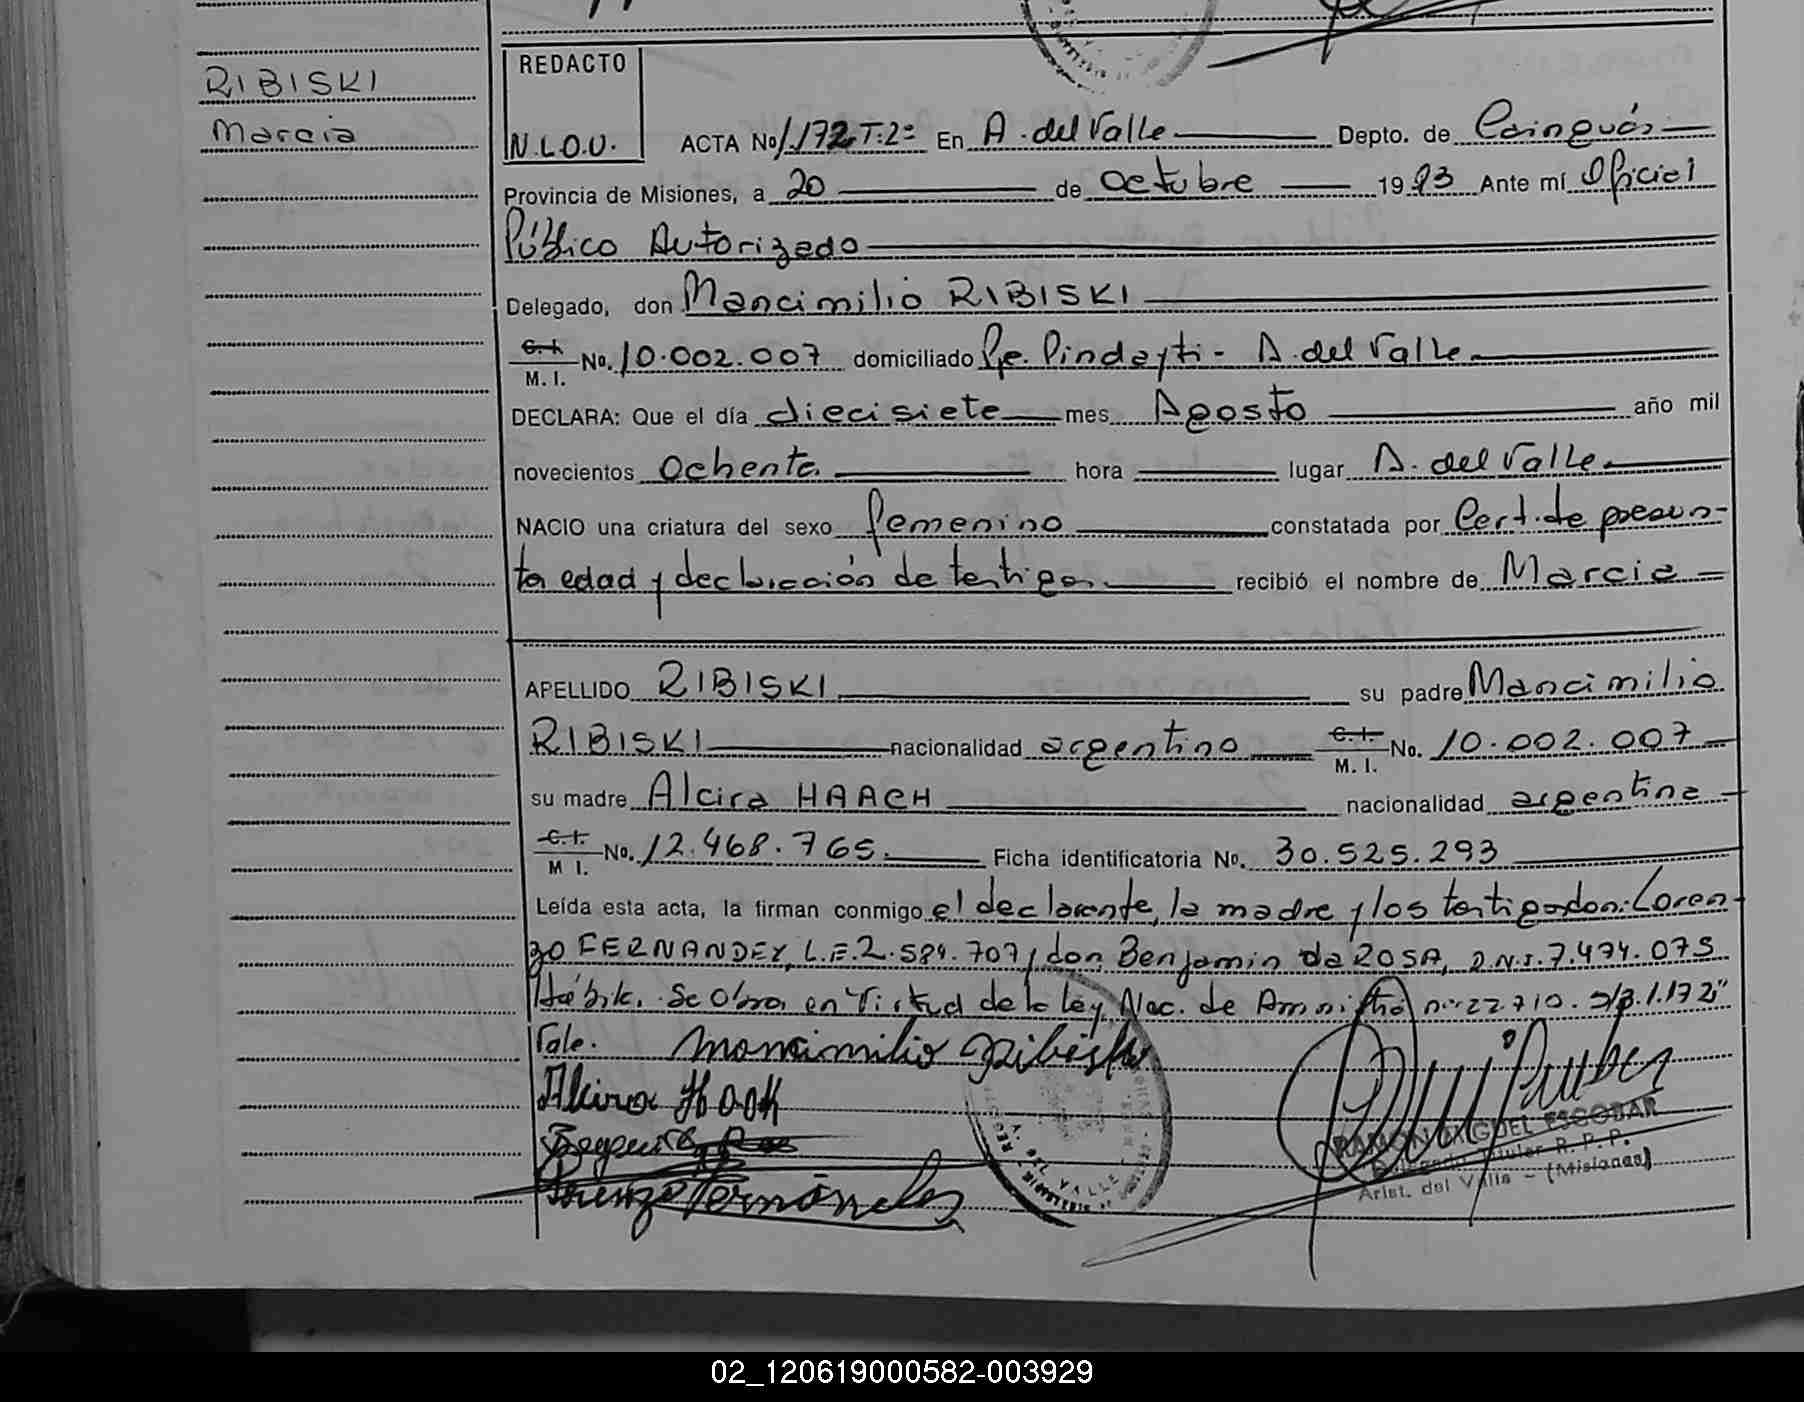 RIBISKI
Marcia
REDACTO
N.L.O.U.
ACTA No 1.172 T:2º En A. del Valle Depto. de Cainguás
Provincia de Misiones, a 20 de Octubre 1993 Ante mí Oficial
Público Autorizado
Delegado, don Mancimilio RIBISKI
C.I. M.I. No. 10.002.007 domiciliado Pje. Pindayti - A. del Valle
DECLARA: Que el día diecisiete mes Agosto año mil
novecientos Ochenta hora lugar A. del Valle
NACIO una criatura del sexo femenino constatada por Cert. de presun-
ta edad y declaración de testigos recibió el nombre de Marcia
APELLIDO RIBISKI su padre Mancimilio
RIBISKI nacionalidad argentino C.I. M.I. No. 10.002.007
su madre Alcira HAACH nacionalidad argentina
C.I. M I. No. 12.468.765. Ficha identificatoria No. 30.525.293
Leída esta acta, la firman conmigo el declarante, la madre y los testigos don: Loren-
zo FERNANDEZ, L.E. 2.584.707 y don Benjamin da ROSA, D.N.I. 7.474.075
Hábil. Se Obra en Virtud de la ley Nac. de Amnistía nº 22.710. S/B. 1.172"
Vale. Mancimilio Ribiski
Alcira Haach
Lorenzo Fernández
RAMON MIGUEL ESCOBAR
Delegado Titular R. P. P.
Arist. del Valle - (Misiones)
02_120619000582-003929